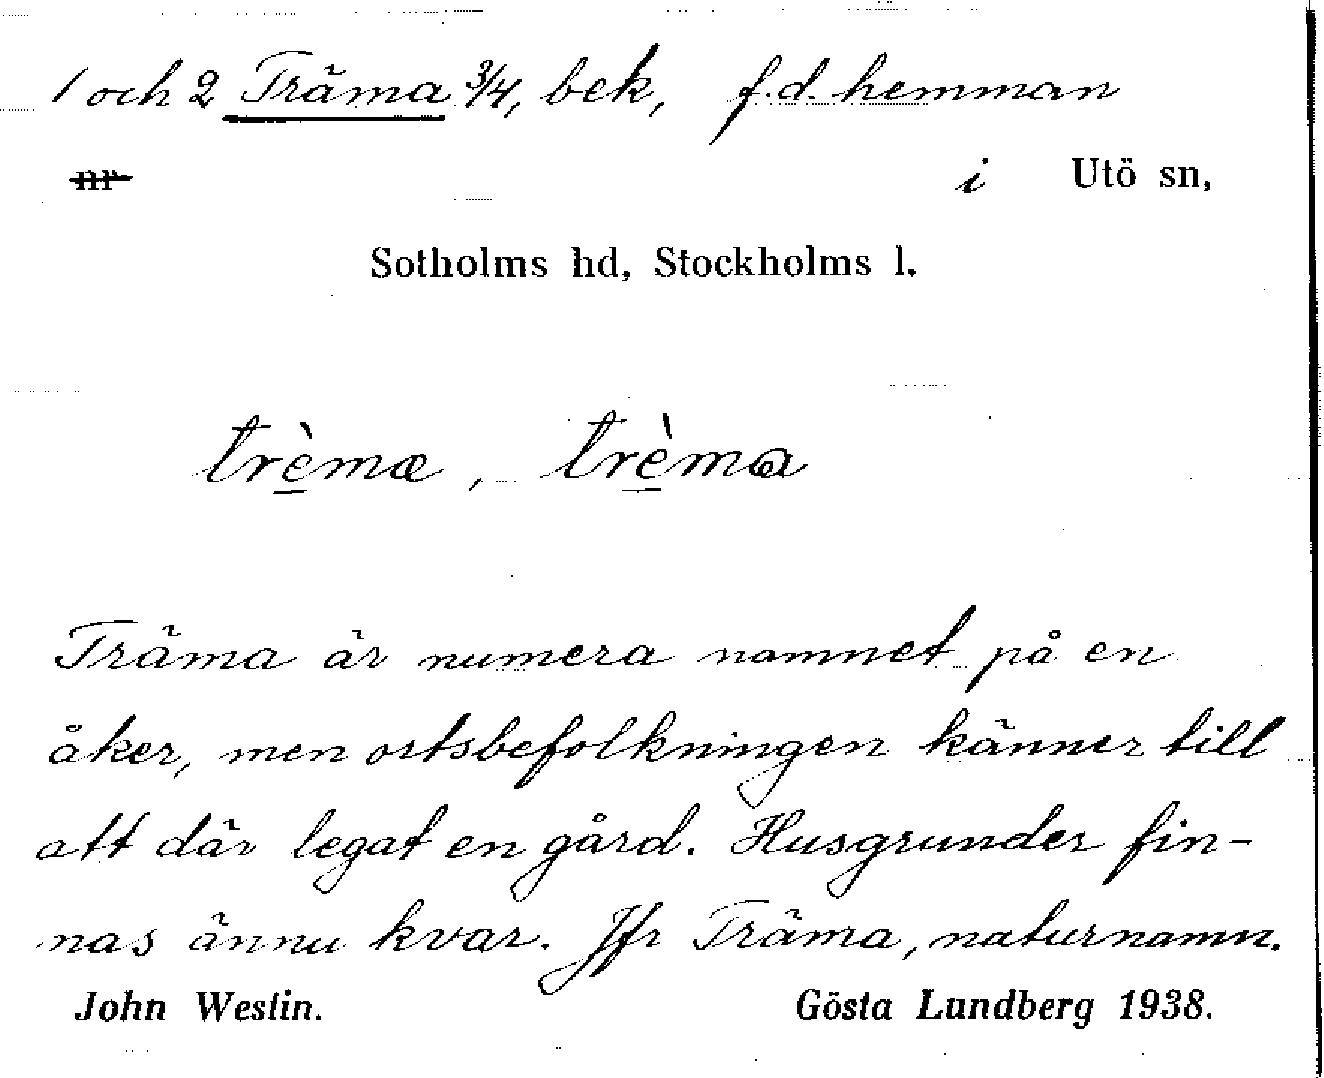 1 och 2 Träma 3/4, bek, f.d. hemman
nr i Utö sn,
Sotholms hd, Stockholms l.
trè̠mæ, trè̠ma
Träma är numera namnet på en
åker, men ortsbefolkningen känner till
att där legat en gård. Husgrunder fin-
nas ännu kvar. Jfr Träma, naturnamn.
John Westin. Gösta Lundberg 1938.